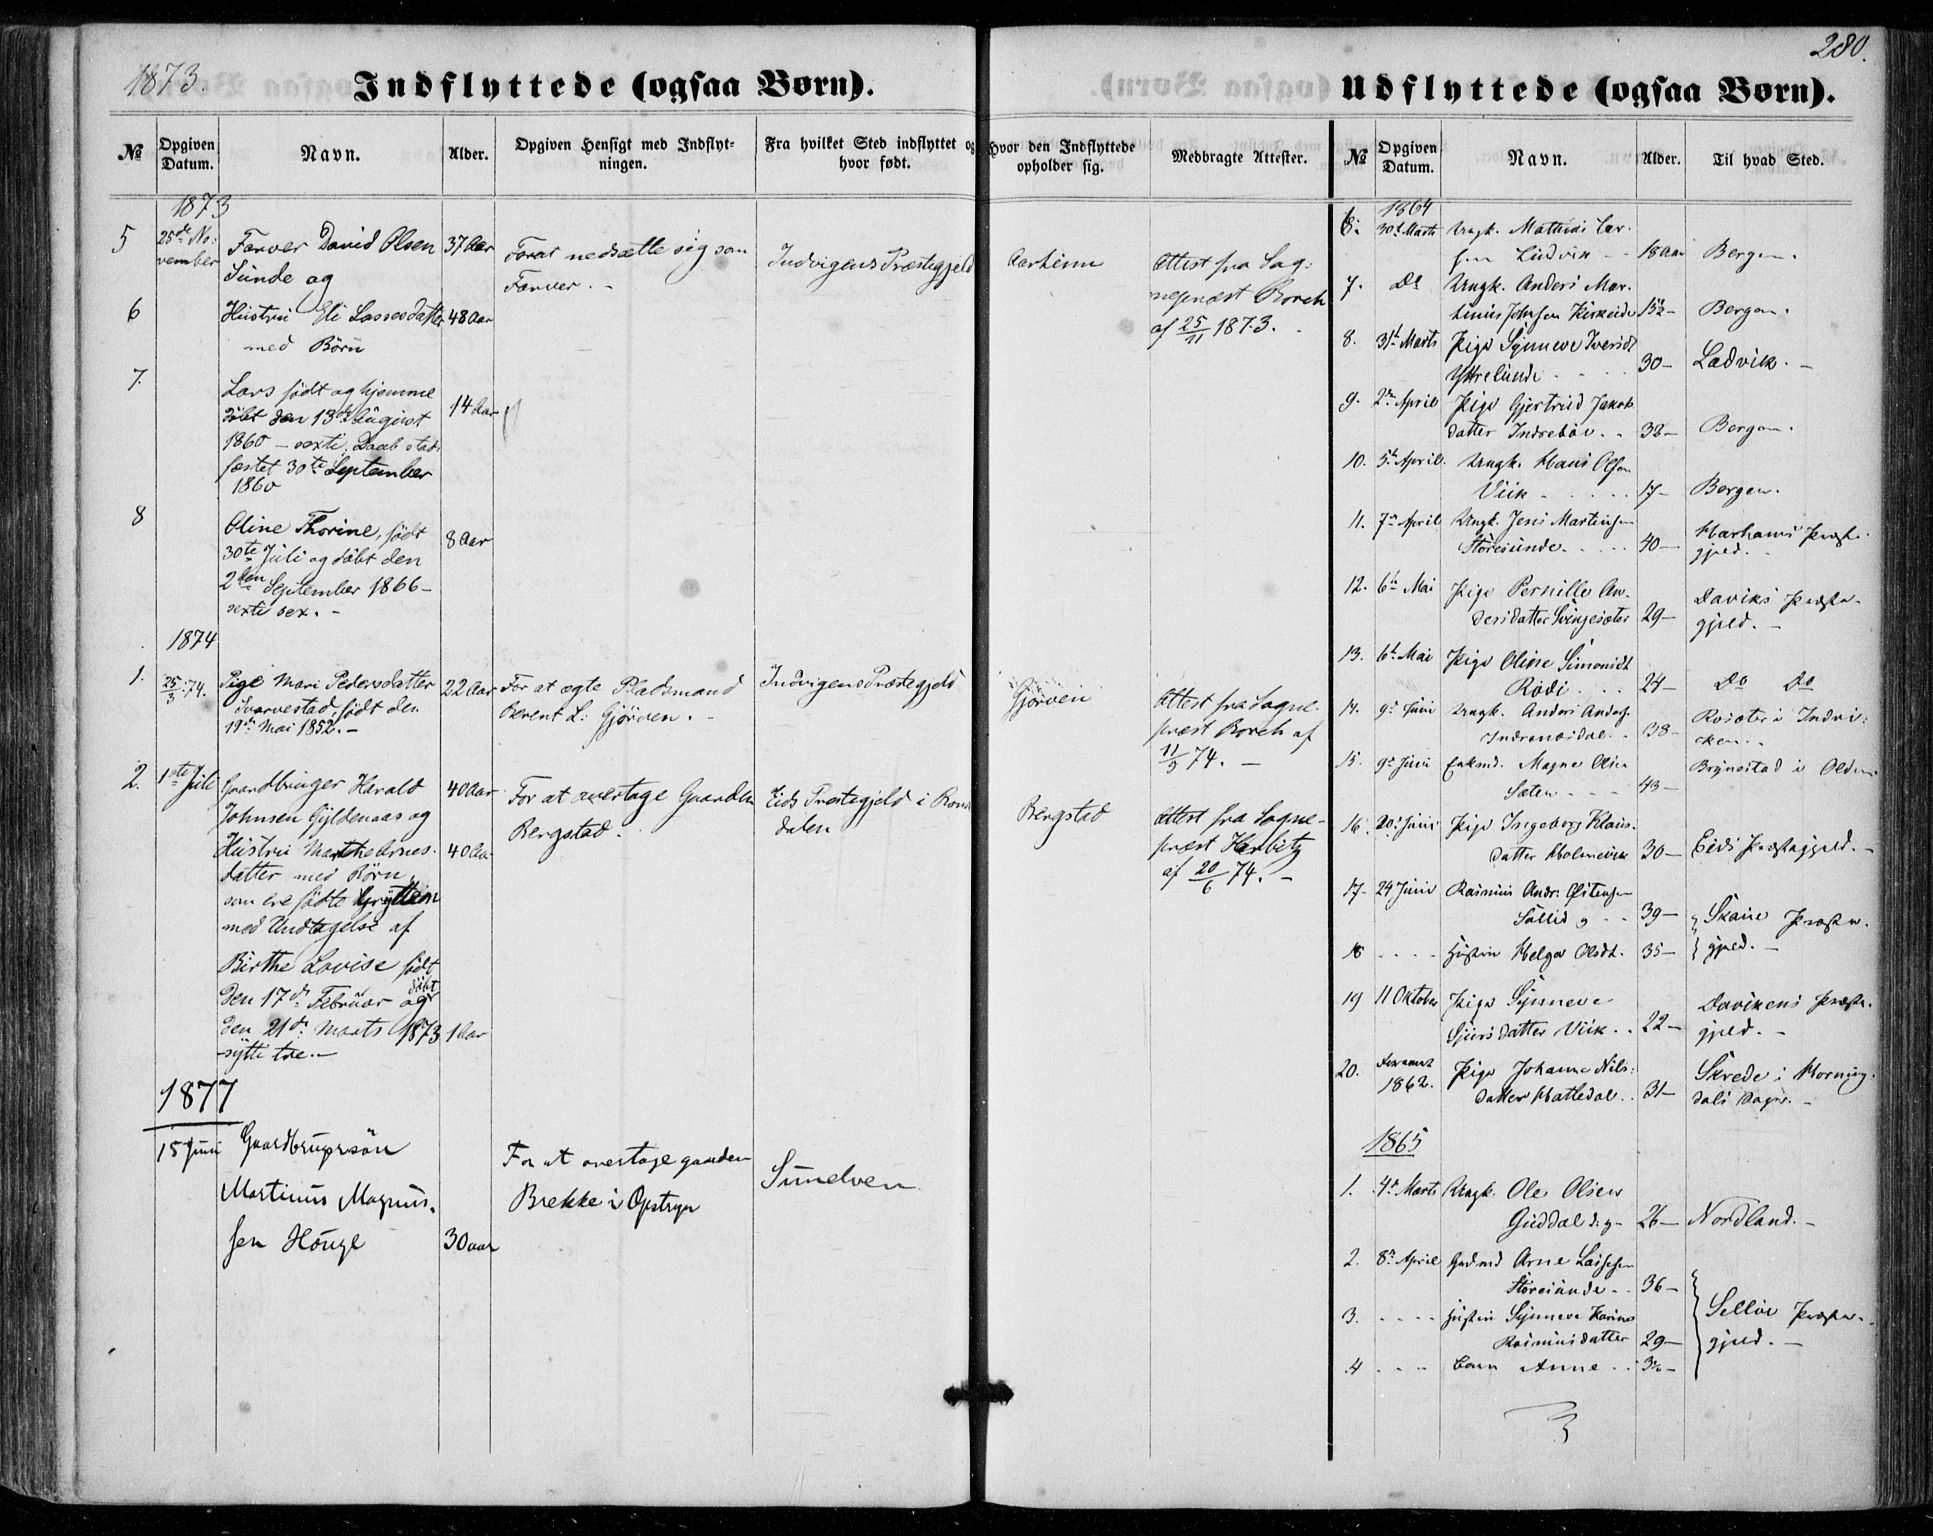 1873.
Indflyttede (ogsaa Børn).
№
Opgiven Datum.
Navn.
Alder.
Opgiven Hensigt med Indflytningen.
Fra hvilket Sted indflyttet og hvor født.
Hvor den Indflyttede opholder sig.
Medbragte Attester.
1873
5
25de November
Farver David Olsen
Sunde og
37 Aar
Forat nedsætte sig som
Farver. -
Indvigens Præstegjeld
Aarheim
Attest fra Sog-
nepræst Borch
af 25/11 1873.
6
Hustru Eli Lassesdatter
med Børn
48 Aar
7.
Lars født og hjemme
døbt den 13de August
1860 - sexti, Daab stad-
fæstet 30te September
1860
14 Aar
8
Oline Thorine, født
30te Juli og døbt den
2den September 1866 -
sexti sex. -
8 Aar
1874
1.
25/3 74.
Pige Mari Pedersdatter
Tvarvestad, født den
19de Mai 1852. -
22 Aar
For at ægte Pladsmand
Berent L: Gjørven. -
Indvigens Præstegjeld
Gjørven
Attest fra Sogne-
præst Borch af
11/3 74. -
2.
1ste Juli
Gaardbruger Harald
Johnsen Gyldenaas og
40 Aar
For at overtage Gaarden
Bergstad.
Eids Præstegjeld i Roms-
dalen
Bergstad
Attest fra Sogne-
præst Harbitz
af 20/6 74. -
Hustru Marthe Arnes-
datter med Børn,
som ere fødte Gryttein
med Undtagelse af
40 Aar
Birthe Lovise født
den 17de Februar og døbt
den 21de Marts 1873
sytti tre. -
1 Aar
1877
15 Juni
Gaardbrugersøn
Martinus Magnus-
sen Houge
30 aar
For at overtage gaarden
Brekke i Opstryn
Sunelven
280.
Udflyttede (ogsaa Børn).
№
Opgiven Datum.
Navn.
Alder.
Til hvad Sted.
1864
6.
30te Marts
Ungk. Mathias Lar-
sen Ludvik
18 Aar
Bergen.
7.
Do
Ungk. Anders Mar-
tinus Johnsen Kirkeide
15½ -
Bergen.
8.
31te Marts
Pige Synneve Iversdt
Ytrelunde
30 -
Ladvik. -
9.
2den April
Pige Gjertrud Jakob-
datter Indrebø
38 -
Bergen.
10.
5te April.
Ungk. Hans Olsen
Viik
17 -
Bergen.
11.
7de April
Ungk. Jens Martinsen
Storesunde
40 -
Harhams Præste-
gjeld.
12.
6te Mai
Pige Pernille An-
dersdatter Svingesæter
29 -
Daviks Præste-
gjeld. -
13.
6te Mai
Pige Oline Simonsdt
Rødi
24 -
Do Do
14.
9de Juni
Ungk. Anders Anders.
Indrenæsdal
38 -
15.
9de Juni
Enkmd. Magne Olsen
Sæten
43 -
Brynestad i Olden
16.
20de Juni
Pige Ingeborg Klaus-
datter Holmevik
30 -
Eids Præstegjeld. -
17 -
24 Juni
Rasmus Andr: Østensen
Sollid og
39 -
Skaue Præste-
gjeld. -
18
Hustru Helga Olsdt.
35 -
19
11 Oktober
Pige Synneve
Sjursdatter Viik
22 -
Davikens Præste-
gjeld. -
20.
1862.
Pige Johanne Nils-
datter Hattedal
31 -
Skrede i Horning-
dals Sogn. -
1865
1.
4de Marts
Ungk. Ole Olsen
Guddal d. y -
26 -
Nordland. -
2.
8de April
Gadmd Arne Lassesen
Storesunde
36 -
Selløe Præste-
gjeld. -
3.
Hustru Synneve Karine
Rasmusdatter
29 -
4
Barn Anne